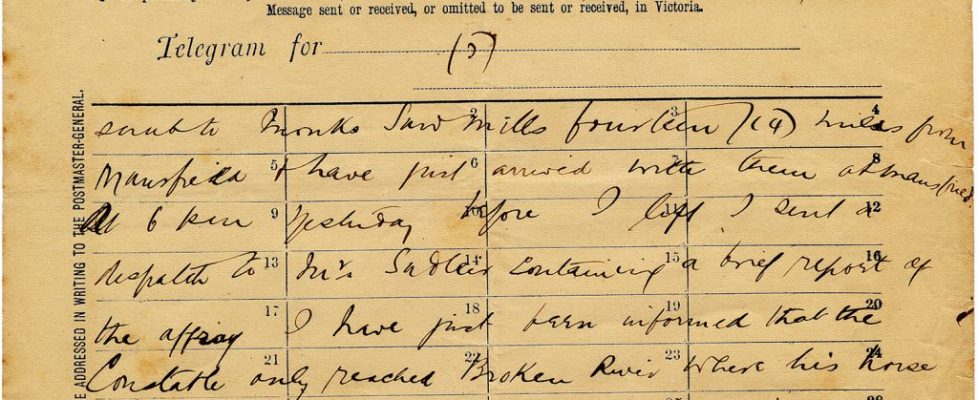 Message sent or received, or omitted to be sent or received, in Victoria.
Telegram for (5)
E ADDRESSED IN WRITING TO THE POSTMASTER-GENERAL.
scrub to Monks Saw Mills fourteen (14) miles from
Mansfield I have just arrived with them at Mansfield
At 6 pm Yesterday before I left I sent a
despatch to Inr Sadleir containing a brief report of
the affray I have just been informed that the
Constable only reached Broken River where his horse
2 3 4
5 6 7 8
9 10 11 12
13 14 15 16
17 18 19 20
21 22 23 24